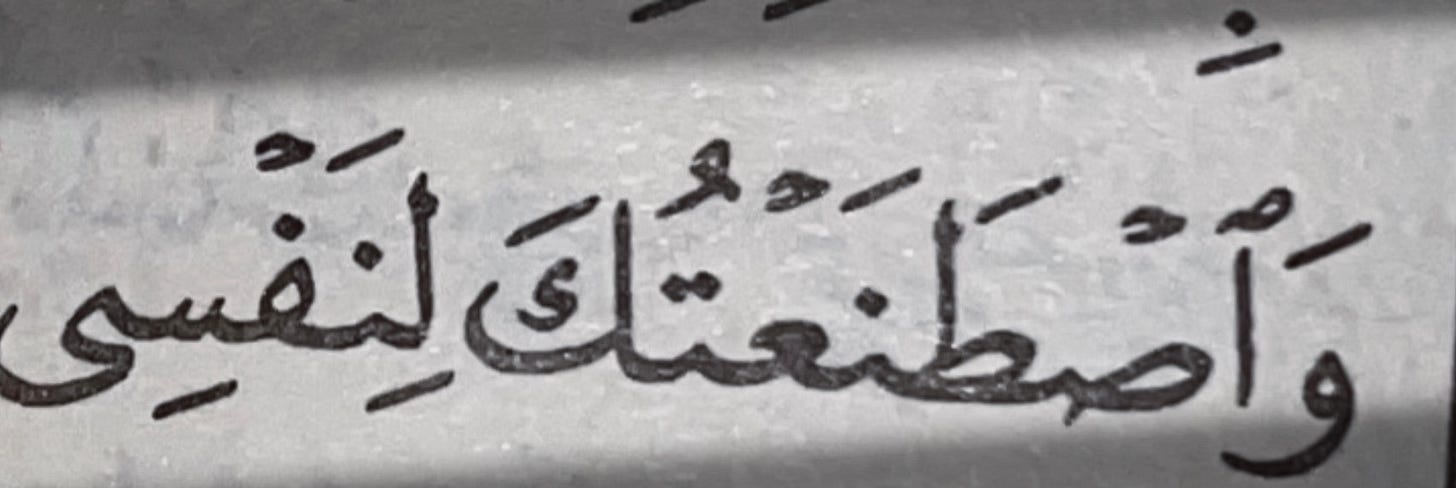 وَٱصْطَنَعْتُكَ لِنَفْسِى